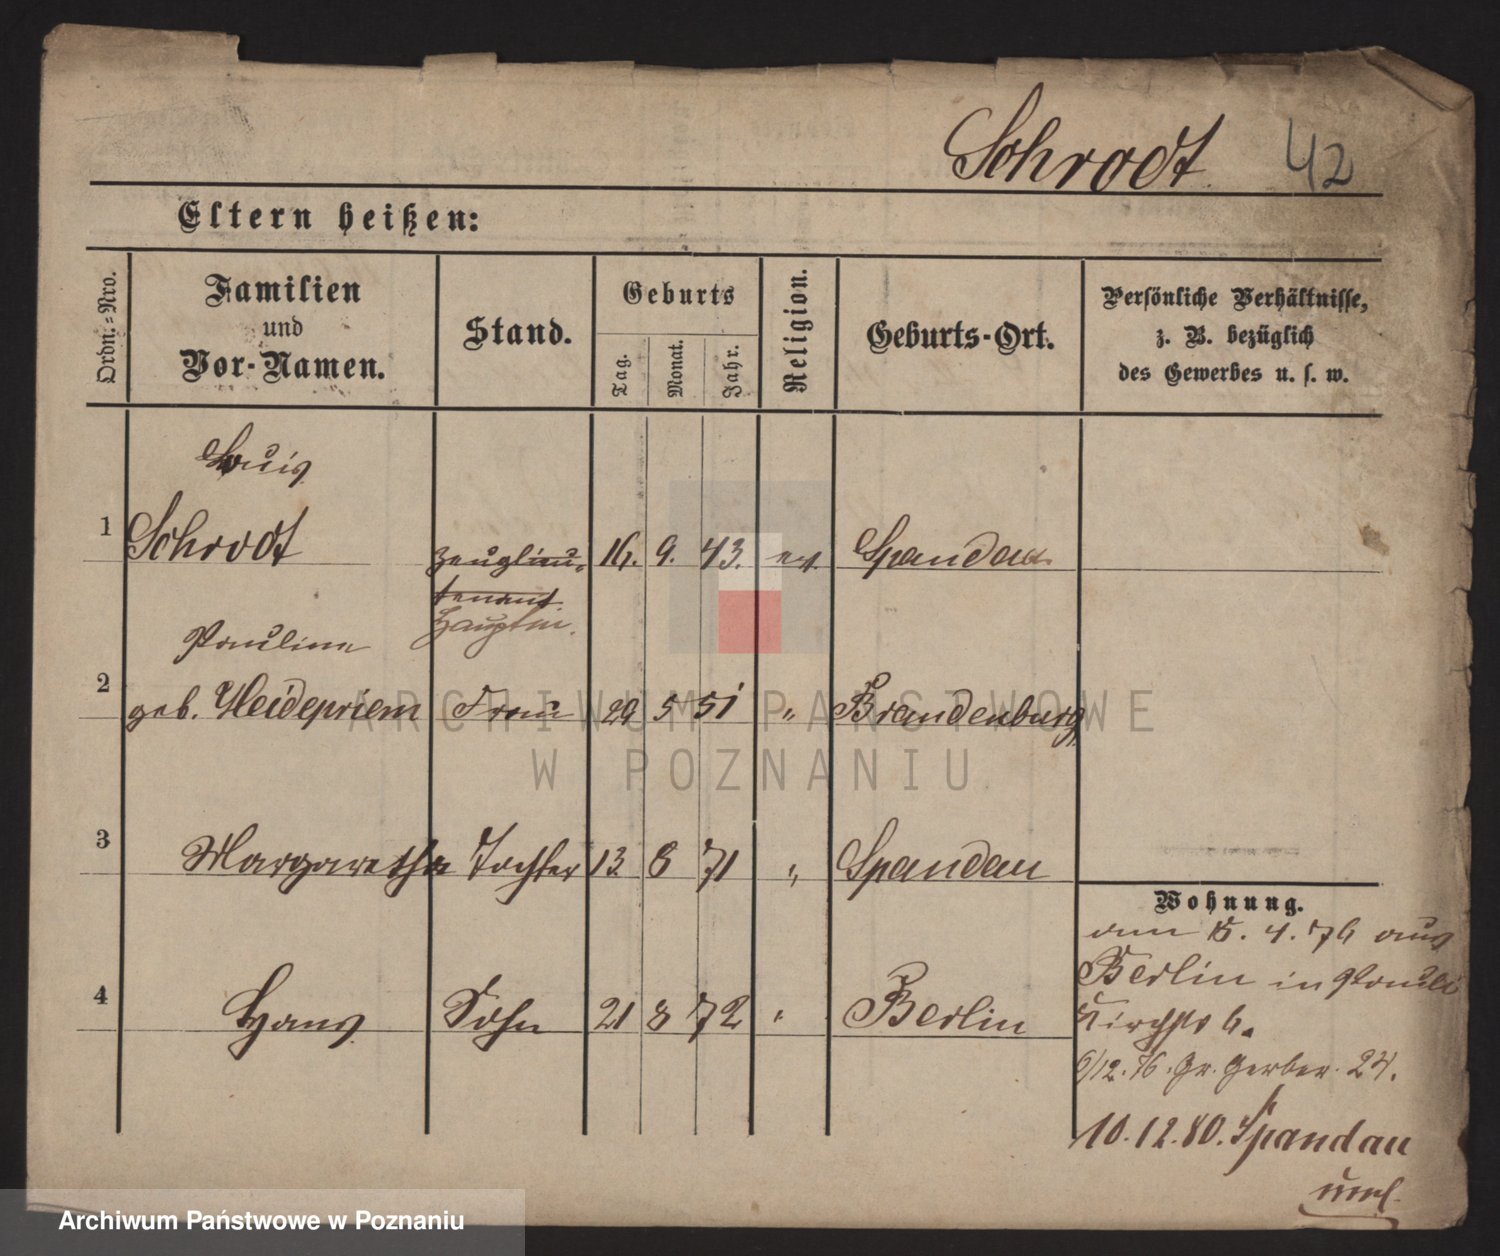 Schrodt. 42
Eltern heißen:
Ordn.-Nro.
Familien
und
Vor-Namen.
Stand.
Geburts
Tag.
Monat.
Jahr.
Religion.
Geburts-Ort.
Persönliche Verhältnisse,
z. B. bezüglich
des Gewerbes u. s. w.
Louis
1 Schrodt Zeuglieu- 16. 9. 43. ev. Spandau
tenant
Hauptm.
Pauline
2 geb. Heidepriem Frau 29 5 51 " Brandenburg
3 Margarethe Tochter 13 8 71 " Spandau
4 Hans Sohn 21 8 72 " Berlin
Wohnung.
am 15. 4. 76 aus
Berlin in Pauli
Kirchstr 6.
6/12. 76. Gr. Gerber. 24.
10.12.80. Spandau
ARCHIWUM PAŃSTWOWE
W POZNANIU
Archiwum Państwowe w Poznaniu